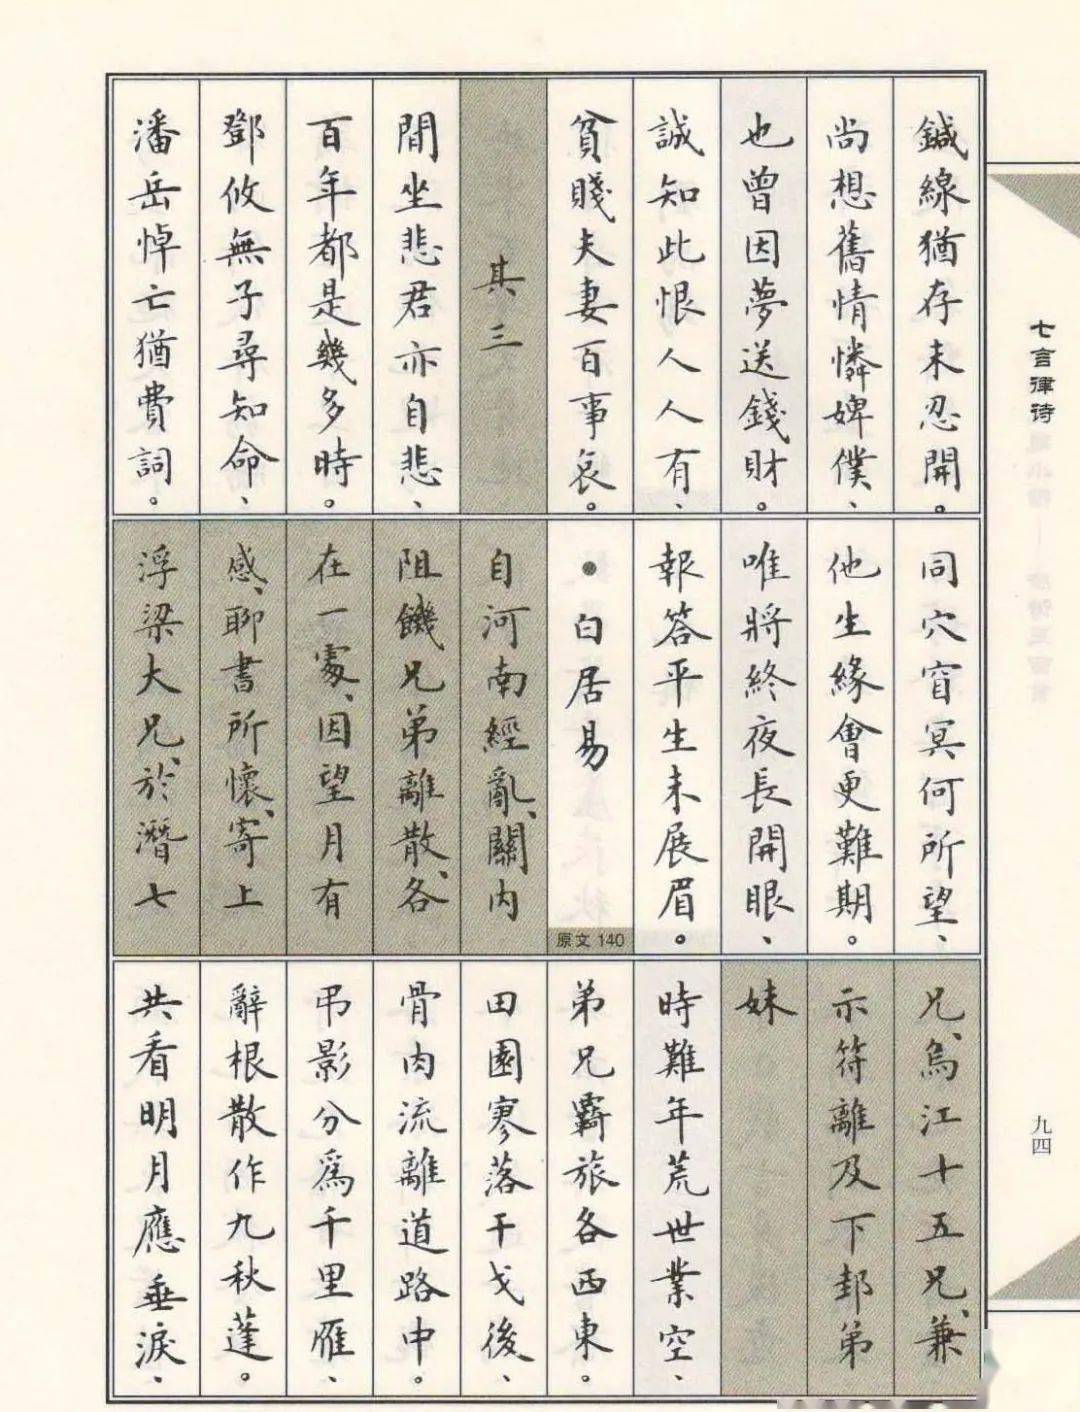 鍼線猶存未忍開。
尚想舊情憐婢僕、
也曾因夢送錢財。
誠知此恨人人有、
貧賤夫妻百事哀。
其三
閒坐悲君亦自悲、
百年都是幾多時。
鄧攸無子尋知命、
潘岳悼亡猶費詞。
同穴窅冥何所望、
他生緣會更難期。
唯將終夜長開眼、
報答平生未展眉。
●白居易
原文 140
自河南經亂、關內
阻饑兄弟離散、各
在一處、因望月有
感、聊書所懷、寄上
浮梁大兄、於潛七
兄、烏江十五兄、兼
示符離及下邽弟
妹
時難年荒世業空、
弟兄羇旅各西東。
田園寥落干戈後、
骨肉流離道路中。
弔影分爲千里雁、
辭根散作九秋蓬。
共看明月應垂淚、
七言律诗
九四